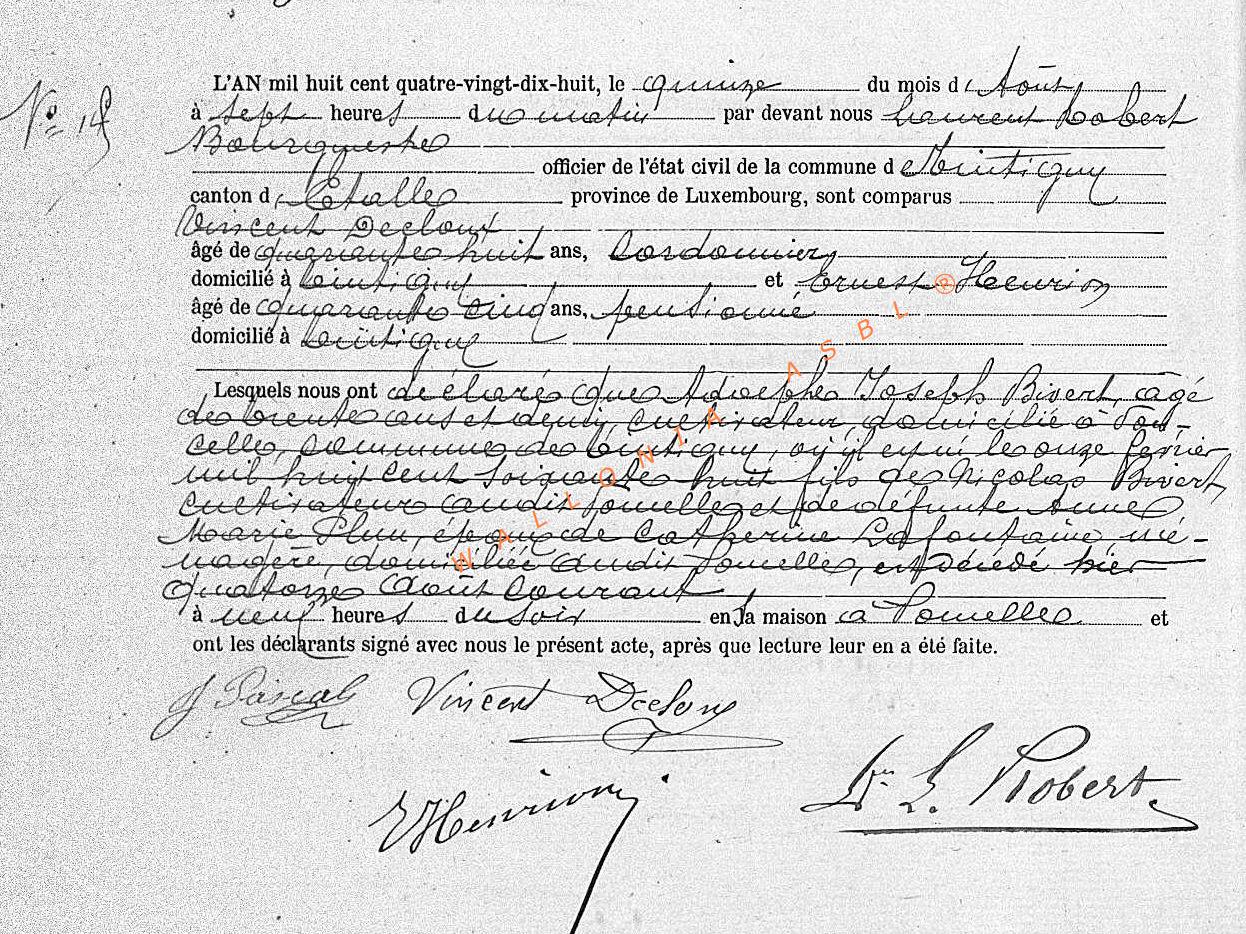 L'AN mil huit cent quatre-vingt-dix-huit, le quinze du mois d' Août
N° 15
à sept heures du matin par devant nous Laurent Robert
Bourgmestre
officier de l'état civil de la commune de Tintigny
canton d' Etalle province de Luxembourg, sont comparus
Vincent Decloux
âgé de quarante huit ans, Cordonnier,
domicilié à Tintigny et Ernest Henrion
âgé de quarante cinq ans, pensionné
domicilié à Tintigny
Lesquels nous ont déclaré que Adolphe Joseph Bivert, agé
de trente ans et demi, cultivateur, domicilié à Pon-
celle, commune de Tintigny, où il est né le onze février
mil huit cent soixante huit fils de Nicolas Bivert,
cultivateur audit Poncelle et de défunte Anne
Marie Plun, époux de Catherine Lafontaine, mé-
nagère, domiciliée audit Poncelle, est décédé hier
quatorze août courant,
à neuf heures du soir en sa maison à Poncelle et
ont les déclarants signé avec nous le présent acte, après que lecture leur en a été faite.
J Pascal Vincent Decloux
EHenrion
L. Robert.
WALLONIA ASBL ®